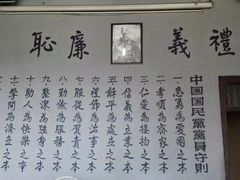 禮義廉恥
中国国民黨黨員守則
一忠勇為愛國之本
二孝順為齊家之本
三仁愛為接物之本
四信義為立業之本
五和平為處世之本
六禮節為治事之本
七服從為負責之本
八勤儉為服務之本
九整潔為強身之本
十助人為快樂之本
十一學問為濟世之本